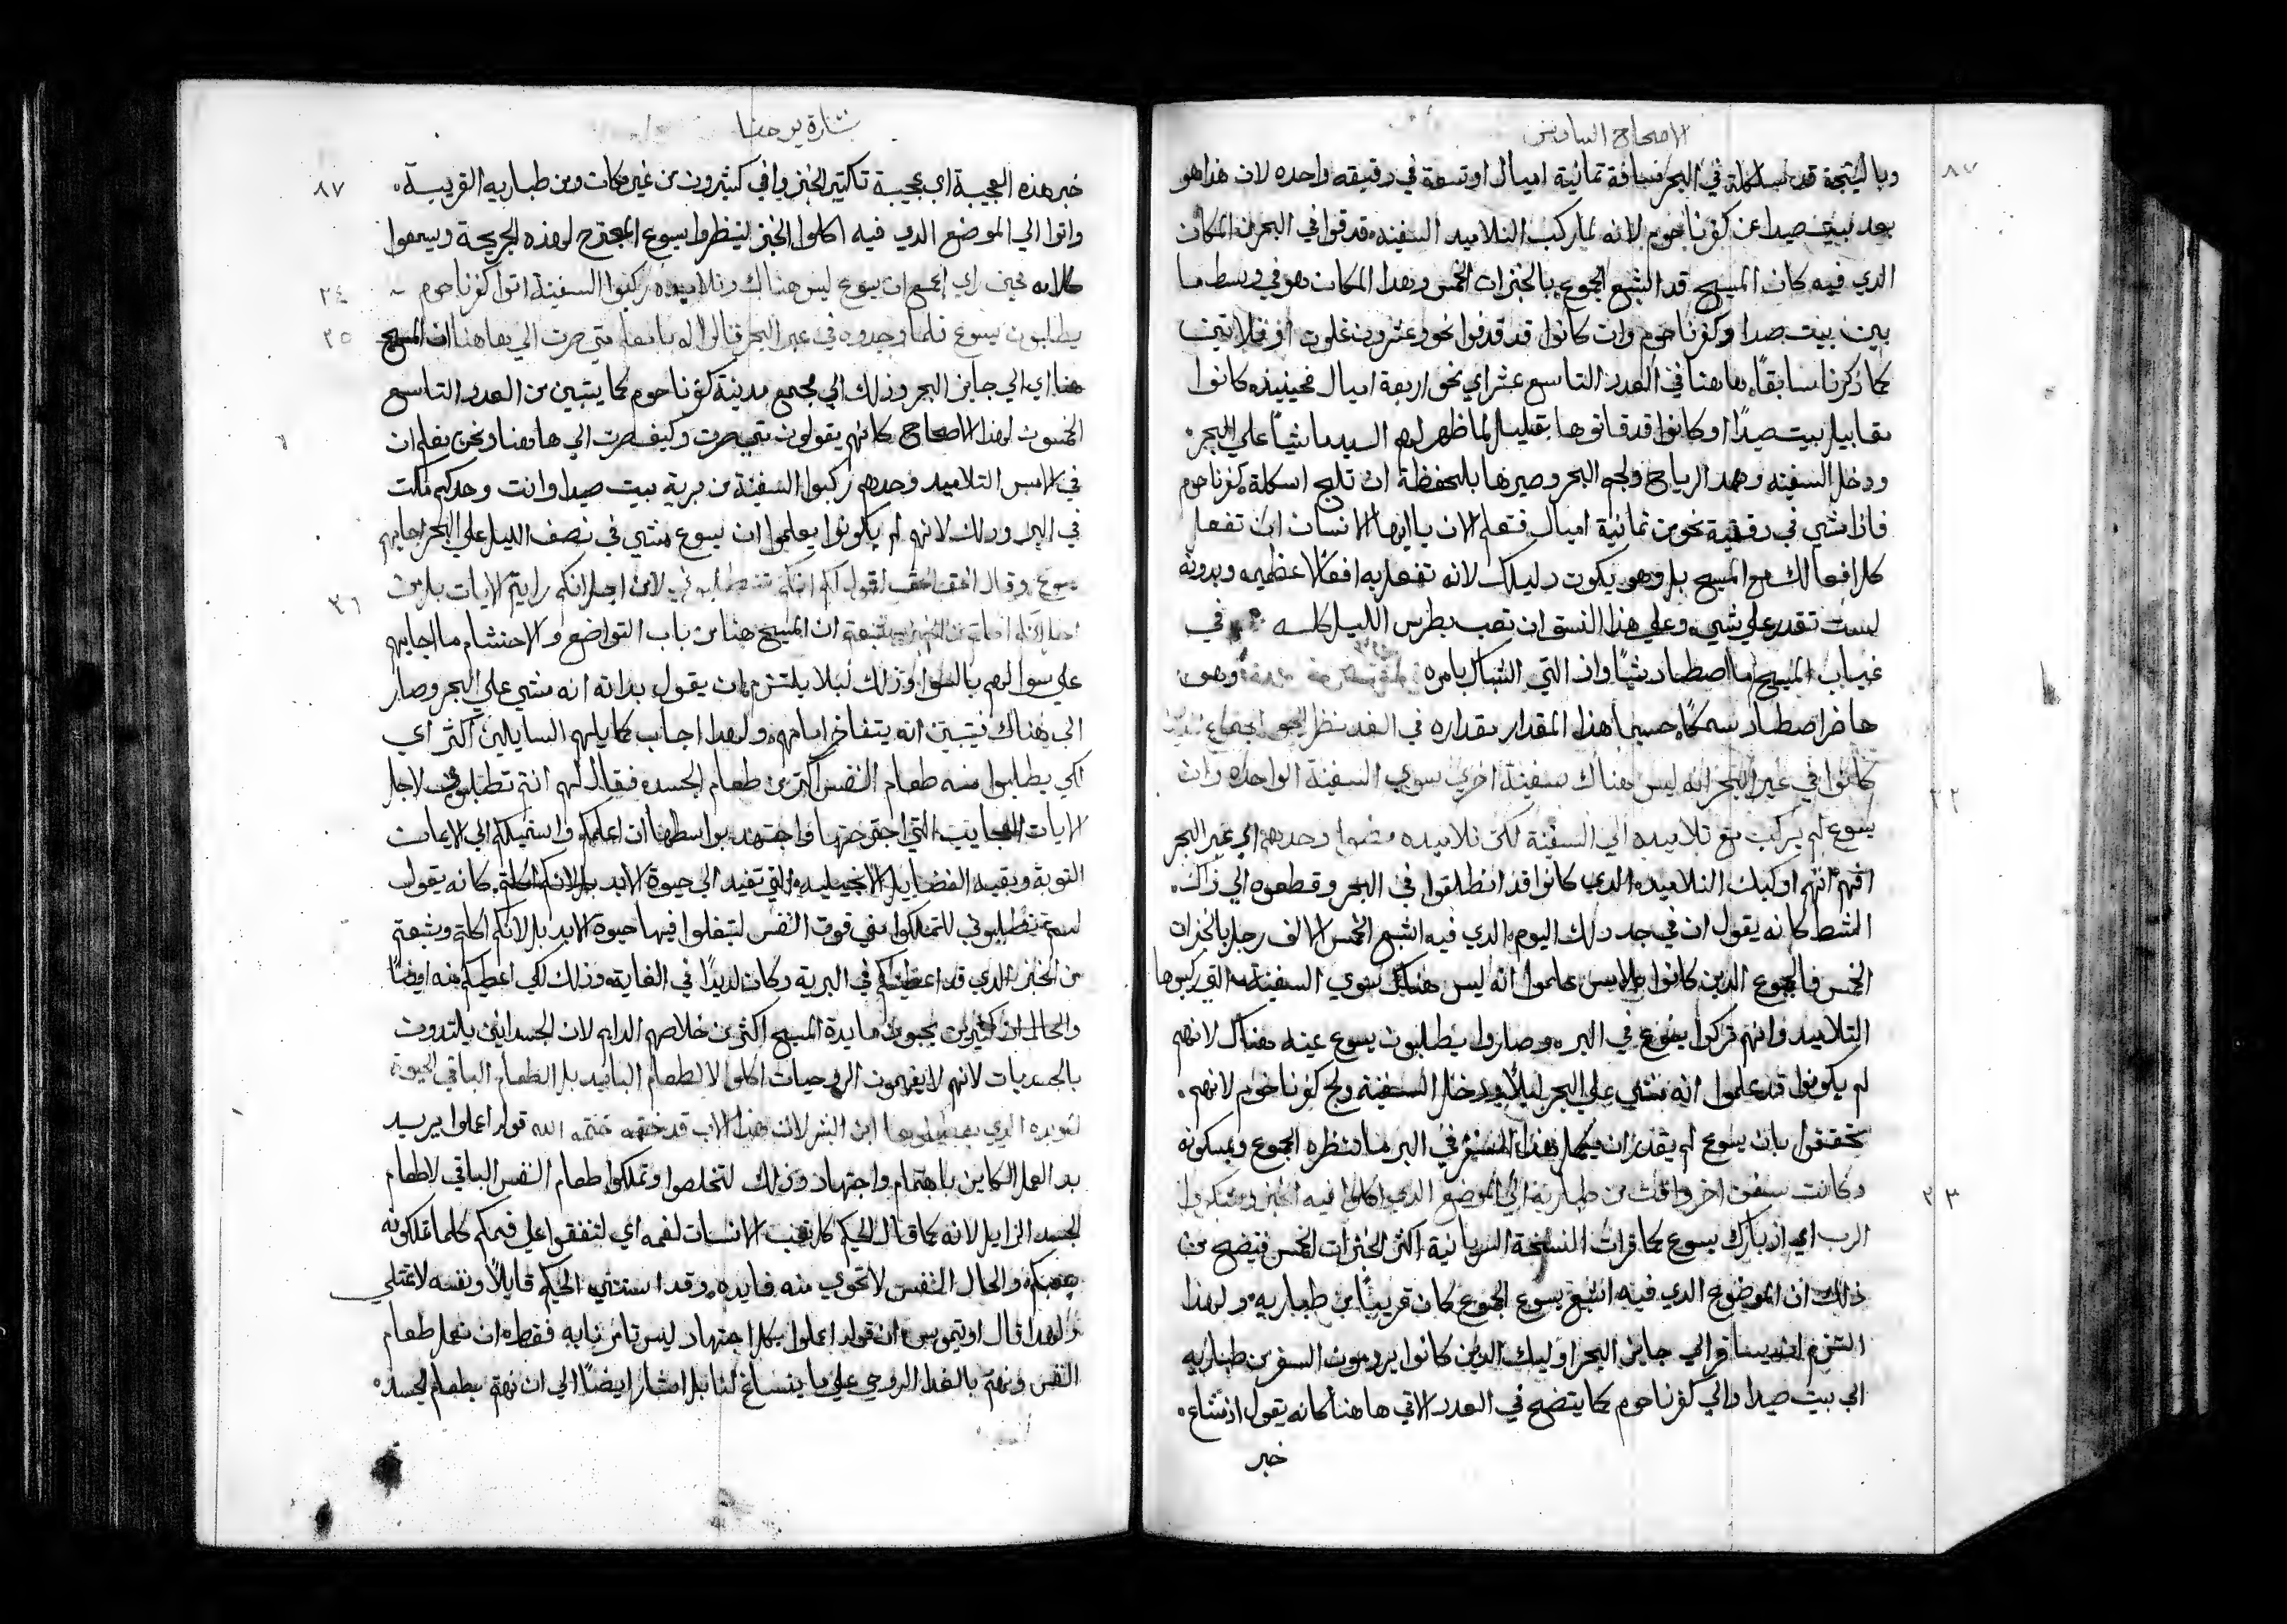 الاصحاح السادس
٨٧
وبالنتيجة قد في البحر مسافة تمانية اميال او تسعة في دقيقه واحده لان هذا هو
بعد بيت صيدا عن كفرناحوم لانه لما ركب التلاميد السفينه قد قوا في البحر من المكان
الدي فيه كان المسيح قد اشبع الجموع بالخبزات الخمس وهدا المكان هو في وسط ما
بين بيت صيدا وكفرناحوم وان كانوا قد قدفوا نحو عشرون غلوه او تلاتين
كما ذكرنا سابقاً ها هنا في العدد التاسع عشر اي نحو اربعة اميال فحينيذ كانوا
مقابيل بيت صيدا او كانوا قد فاتوها بقليل لما ظهر لهم السيد ماشياً علي البحر
ودخل السفينه وهمد الرياح ولجم البحر وصيرها بلحظة ان تلج اسكلة كفرناحوم
فاذا مشي في دقيقة نحو من تمانية اميال فتعلم الان يا ايها الانسان ان تفعل
كل افعالك مع المسيح بل وهو يكون دليلك لانه تفعل به افعالا عظيمه وبدونه
لست تقدر علي شي وعلي هذا النسق ان تعب بطرس الليل كله في
غياب المسيح ما اصطاد شياً واذ التي الشباك بامره وهو
حاضر اصطاد سمكاً حسيماً هذا المقدار مقداره في الغد نظر الجموع
كانوا في عبر البحر انه ليس هناك سفينة اخري سوي السفينة الواحده وان
٢٢
يسوع لم يركب مع تلاميده الي السفينة لكن تلاميده مضوا وحدهم الي عبر البحر
افهم انهم اوليك التلاميد الدي كانوا قد انطلقوا في البحر وقطعوه الي ذاك
الشط كانه يقول ان في حد دلك اليوم الدي فيه اشبع الخمس الالف رجل بالخبزات
الخمس فالجموع الدين كانوا علموا انه ليس هناك سوي السفينة التي ركبوها
التلاميد وانهم تركوا يسوع في البر وصاروا يطلبون يسوع عينه هناك لانهم
لم يكونوا قد علموا انه مشي علي البحر ليلاً ودخل السفينة ولج كفرناحوم لانهم
تحققوا بان يسوع لم يقدر ان يكمل هذا السفر في البر ما لم تنظره الجموع ويمسكونه
٢٣
وكانت سفن اخر وافت من طبارية الي الموضع الدي اكلوا فيه الخبز وشكروا
الرب اي اذ بارك يسوع كما قرات النسخة السريانية اكثر الخبزات الخمس فيتضح من
ذلك ان الموضوع الدي فيه اشبع يسوع الجموع كان قريباً من طباريه ولهذا
التزم ان يسافر الي جايز البحر اوليك الدين كانوا يرومون السفر من طباريه
الي بيت صيدا والي كفرناحوم كما يتضح في العدد الاتي ها هنا كانه يقول اذ شاع
خبر
بشارة يوحنا
٨٧
خبر هذه العجيبة اي عجيبة تاكتير الخبز وافي كثيرون من غير مكان ومن طباريه القريبة
واتوا الي الموضع الدي فيه اكلوا الخبز لينظروا يسوع المجترح لهذه الجريحة ويسمعوا
٢٤
كلامه فحين راي الجمع ان يسوع ليس هناك وتلاميده ركبوا السفينة اتوا كفرناحوم
٢٥
يطلبون يسوع فلما وجدوه في عبر البحر قالوا له يا معلم متي صرت الي هاهنا ان المسيح
هنا اي الي جايز البحر وذلك الي مجمع مدينة كفرناحوم كما يتبين من العدد التاسع
الخمسون لهذا الاصحاح كانهم يقولون متي صرت وكيف صرت الي هاهنا ونحن نعلم ان
في الامس التلاميد وحدهم ركبوا السفينة من برية بيت صيدا وانت وحدك مكت
في البر ودلك لانهم لم يكونوا يعلموا ان يسوع مشي في نصف الليل علي البحر اجابهم
٢٦
يسوع وقال الحق الحق اقول لكم انكم تطلبوني لا من اجل انكم رايتم الايات بل من
ان المسيح هنا من باب التواضع والاحتشام ما اجابهم
علي سوالهم بالسوا وذلك ليلا يلتزم بان يقول بداته انه مشي علي البحر وصار
الي هناك فيتبين انه يتفاخر امامهم ولهدا اجاب كما يلهم السايلين اكثر اي
لكي يطلبوا منه طعام النفس اكتر من طعام الجسد فقال لهم انتم تطلبوني لا لاجل
الايات العجايب التي اجترحتها واجتهد بواسطها ان اعلمكم واستميلكم الي الايمان
التوبة وبقية الفضايل الانجيليه التي تفيد الي حيوة الابد بل لانكم اكلتم كانه يقول
لستم تطلبوني لتملكوا مني قوت النفس لتبغلوا فيها حيوة الابد بل لانكم اكلتم وشبعتم
من الخبز الدي قد اعطيتكم في البرية وكان لديداً في الغاية وذلك لكي اعطيكم منه ايضاً
والحال ان كثيرين يحبون مايدة المسيح اكثر من خلاصهم الدايم لان الجسدانين يلتدون
بالجسديات لانهم لا يفهمون الروحيات اكلوا لا لطعام البايد بل الطعام الباقي لحيوة
ابن البشر لان هذا الاب قد ختمه الله قوله اعملوا يريد
بد العمل الكاين باهتمام واجتهاد وذلك لتخلصوا وتملكوا طعام النفس الباقي لا طعام
الجسد الزايل لانه كما قال الحكيم كل تعب الانسان لفمه اي لتنفقوا علي فمكم كلما تملكونه
والحال النفس لا تحوي منه فايده وقد استثني الحكيم قايلاً ونفسه لا تمتلي
ولهدا قال اوتيموس ان قوله اعملوا بكل اجتهاد ليس تامرنا به فقط ان نعمل طعام
النفس ونهتم بالغدا الروحي علي ما ينساغ لنا بل اشار ايضاً الي ان نهتم بطعام الجسد